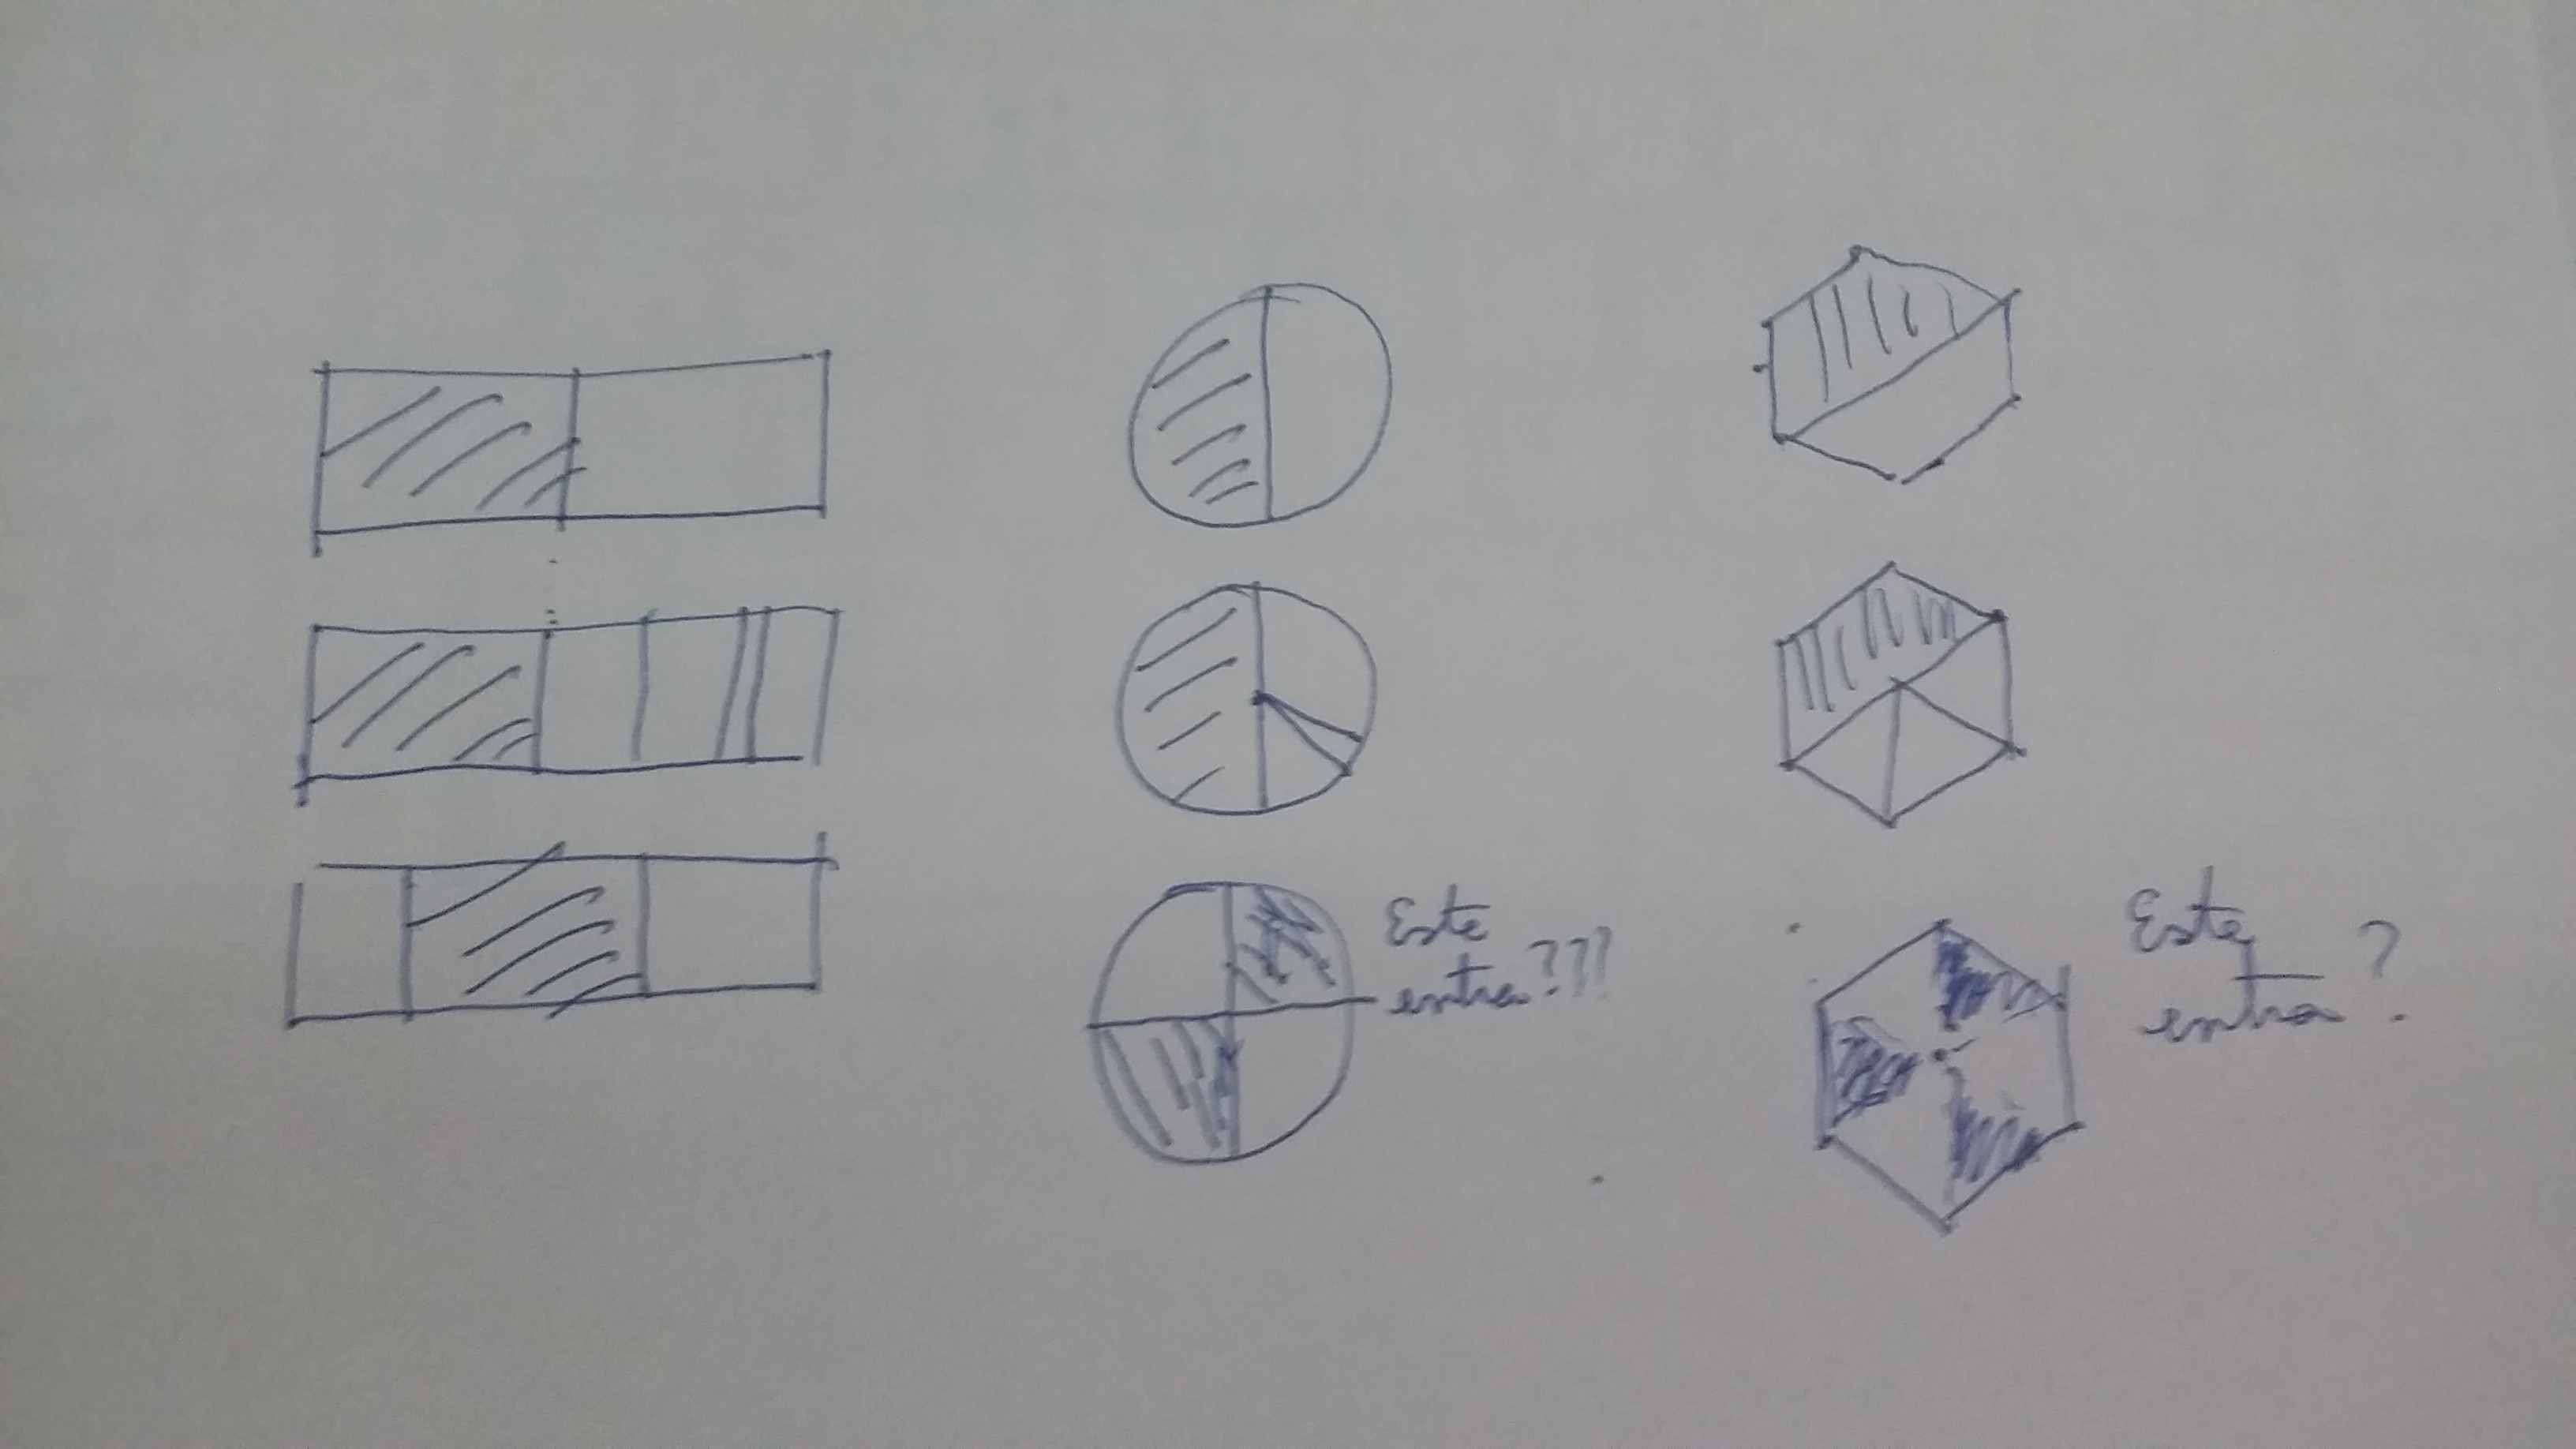 Este
entra???
Este
entra?